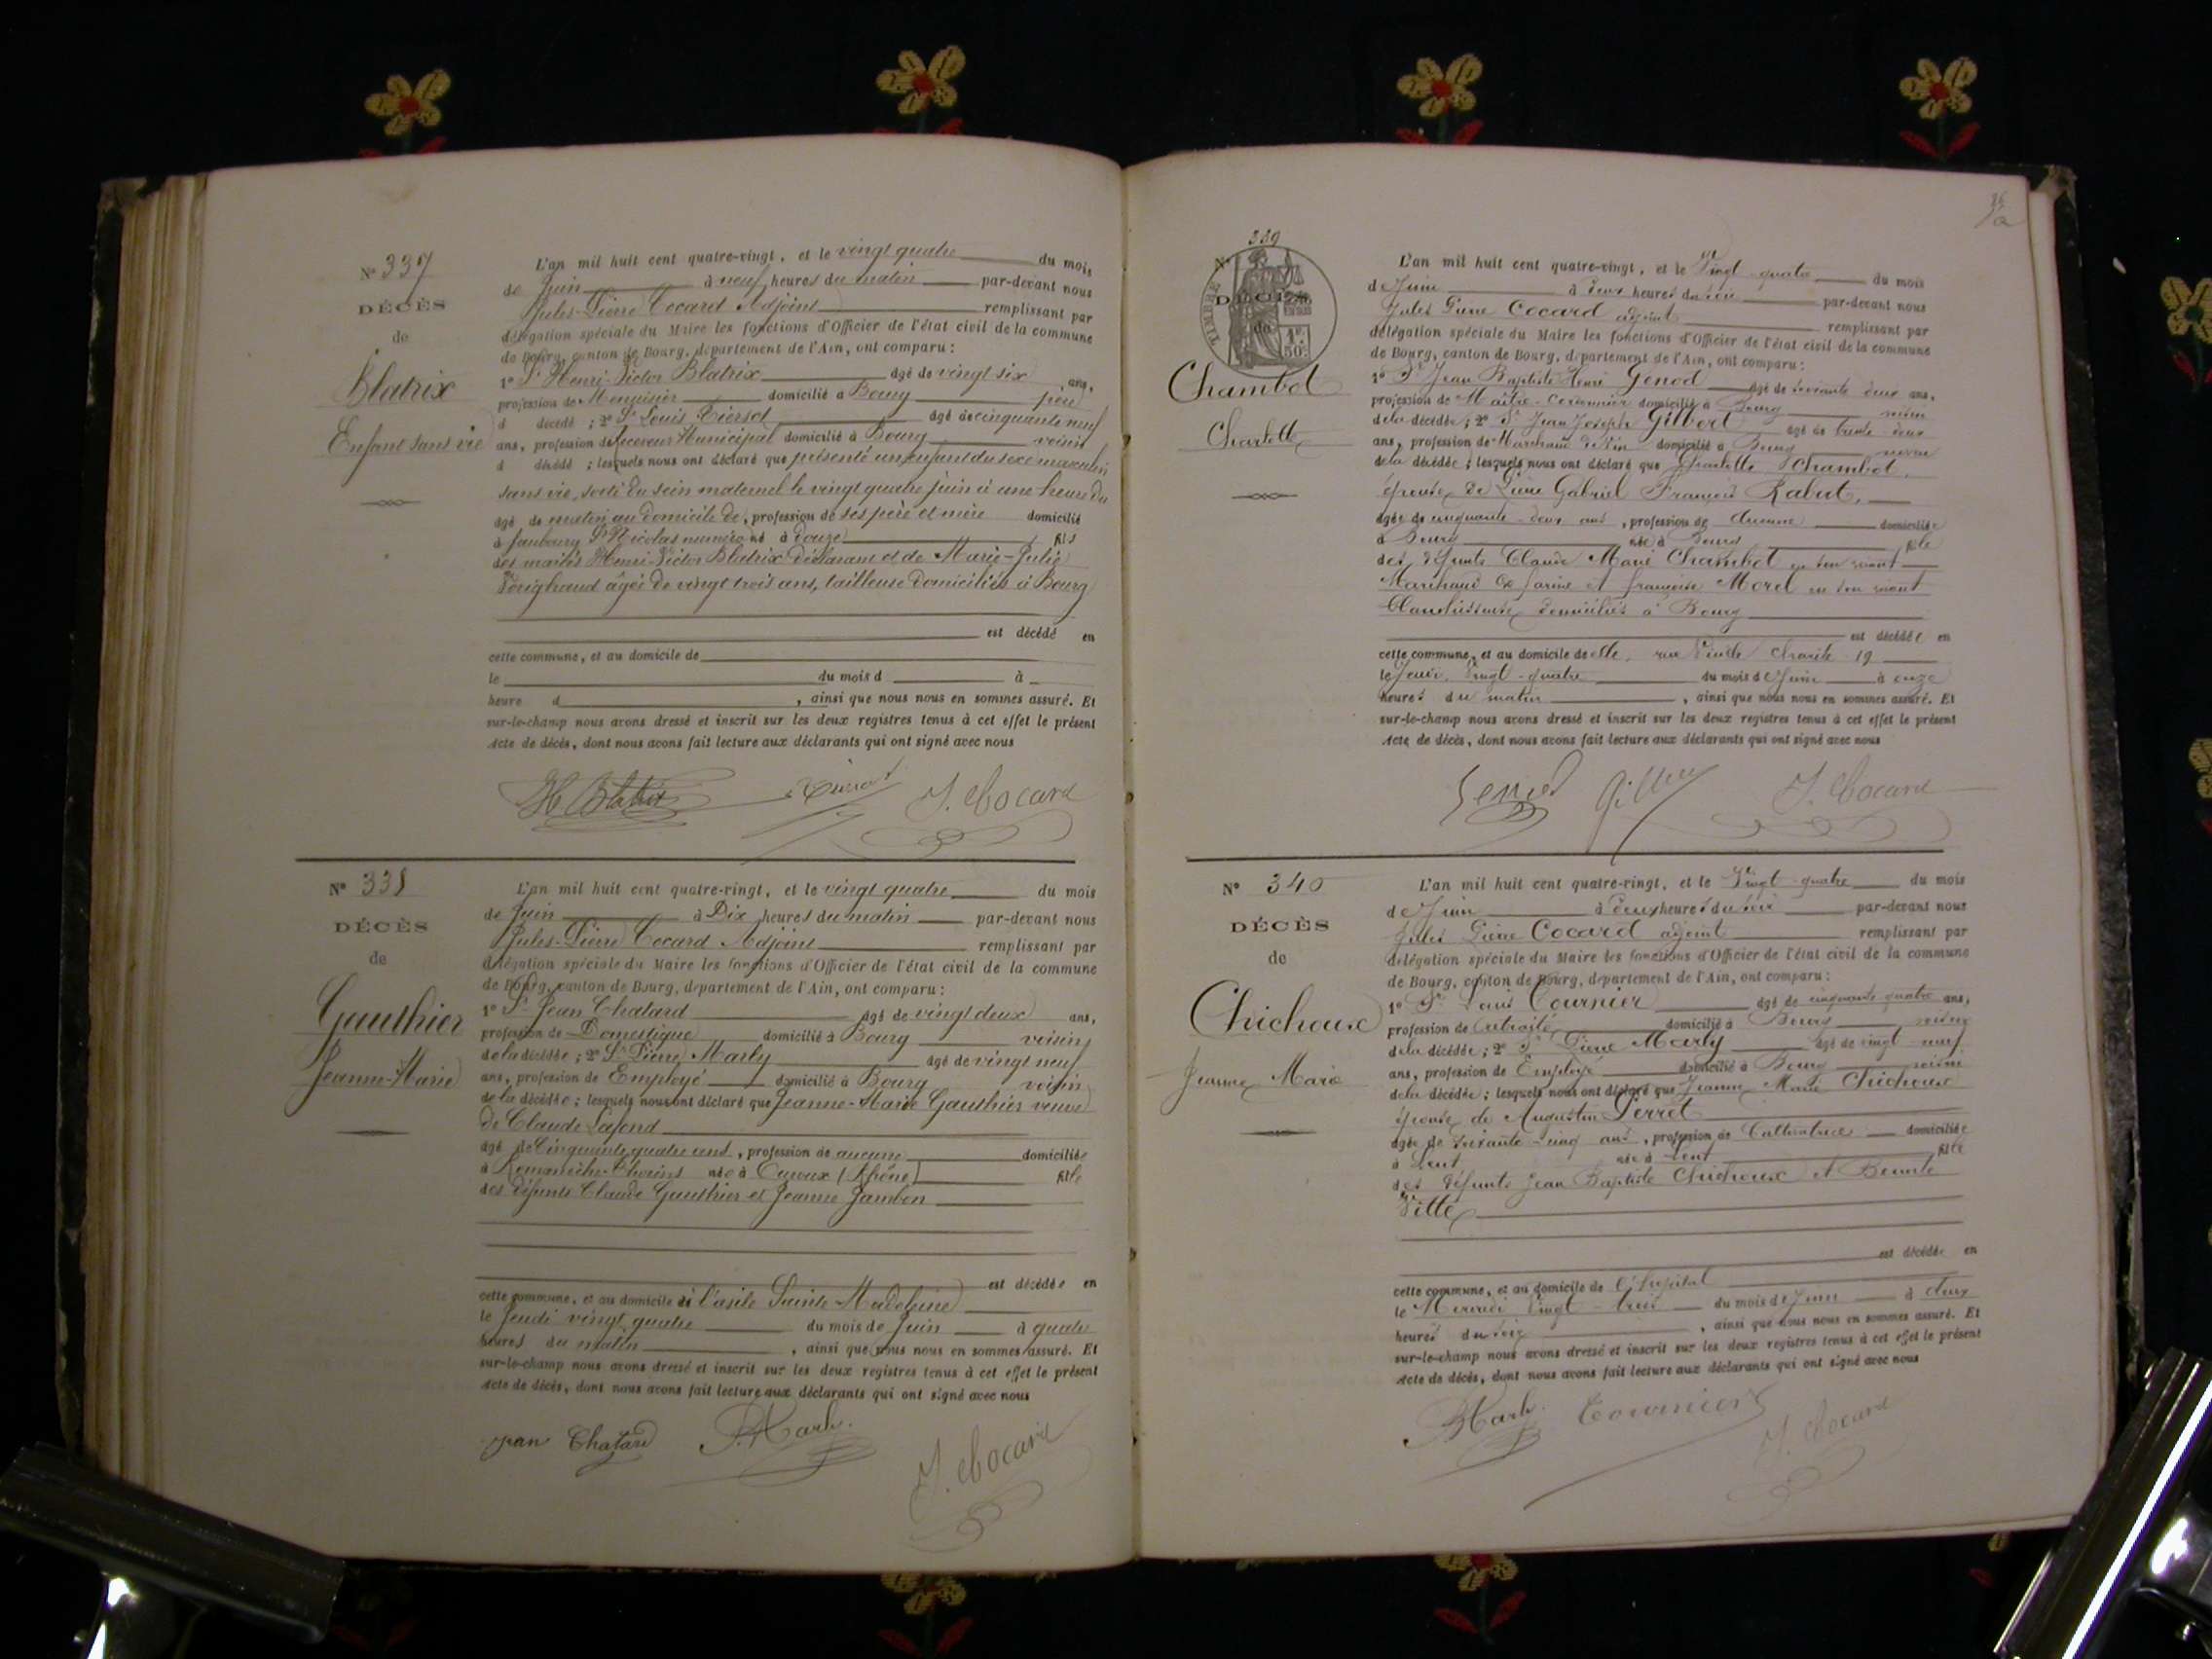 Nº 337
DÉCÈS
de
Blatrix
Enfant sans vie
L'an mil huit cent quatre-vingt, et le vingt quatre du mois
de Juin à neuf heures du matin par-devant nous
Jules-Pierre Cocard Adjoint remplissant par
délégation spéciale du Maire les fonctions d'Officier de l'état civil de la commune
de Bourg, canton de Bourg, département de l'Ain, ont comparu :
1º Sr Henri-Victor Blatrix âgé de vingt six ans,
profession de Menuisier domicilié à Bourg père
d décédé ; 2º Sr Louis Tiersot âgé de cinquante neuf
ans, profession de Receveur Municipal domicilié à Bourg voisin
d décédé ; lesquels nous ont déclaré que présenté un enfant du sexe masculin
sans vie, sorti du sein maternel le vingt quatre juin à une heure du
âgé de matin au domicile de, profession de ses père et mère domicilié
à faubourg St Nicolas numéro né à douze fils
des mariés Henri-Victor Blatrix déclarant et de Marie-Julie
âgée de vingt trois ans, tailleuse domiciliés à Bourg
est décédé en
cette commune, et au domicile de
le du mois d à
heure d , ainsi que nous nous en sommes assuré. Et
sur-le-champ nous avons dressé et inscrit sur les deux registres tenus à cet effet le présent
Acte de décès, dont nous avons fait lecture aux déclarants qui ont signé avec nous
H. Blatrix Tiersot J. Cocard
Nº 338
DÉCÈS
de
Gauthier
Jeanne-Marie
L'an mil huit cent quatre-vingt, et le vingt quatre du mois
de Juin à Dix heures du matin par-devant nous
Jules-Pierre Cocard Adjoint remplissant par
délégation spéciale du Maire les fonctions d'Officier de l'état civil de la commune
de Bourg, canton de Bourg, département de l'Ain, ont comparu :
1º Sr Jean Chatard âgé de vingt deux ans,
profession de Domestique domicilié à Bourg voisin
de la décédée ; 2º Sr Pierre Marly âgé de vingt neuf
ans, profession de Employé domicilié à Bourg voisin
de la décédée ; lesquels nous ont déclaré que Jeanne-Marie Gauthier veuve
de Claude Lafond
âgé de Cinquante quatre ans, profession de aucune domiciliée
à Romanèche-Thorins née à (Rhône) fille
des défunts Claude Gauthier et Jeanne Jambon
est décédée en
cette commune, et au domicile de l'asile Sainte-Madeleine
le Jeudi vingt quatre du mois de Juin à quatre
heures du matin , ainsi que nous nous en sommes assuré. Et
sur-le-champ nous avons dressé et inscrit sur les deux registres tenus à cet effet le présent
Acte de décès, dont nous avons fait lecture aux déclarants qui ont signé avec nous
Jean Chatard P. Marly J. Cocard
339
Nº
DÉCÈS
de
TIMBRE
1F.
50C.
Chambot
Charlotte
L'an mil huit cent quatre-vingt, et le Vingt-quatre du mois
de Juin à Deux heures du soir par-devant nous
Jules Pierre Cocard adjoint remplissant par
délégation spéciale du Maire les fonctions d'Officier de l'état civil de la commune
de Bourg, canton de Bourg, département de l'Ain, ont comparu :
1º Sr Jean Baptiste Henri Genod âgé de soixante deux ans,
profession de Maître-Cordonnier domicilié à Bourg voisin
de la décédée ; 2º Sr Jean Joseph Gilbert âgé de trente deux
ans, profession de Marchand de Vin domicilié à Bourg voisin
de la décédée ; lesquels nous ont déclaré que Charlotte Chambot,
épouse de Pierre Gabriel François Rabut,
âgée de cinquante-deux ans, profession de Aucune domiciliée
à Bourg née à Bourg fille
des défunts Claude Marie Chambot en son vivant
Marchand de farine et françoise Morel en son vivant
Blanchisseuse domiciliés à Bourg
est décédée en
cette commune, et au domicile de elle, rue Vieille Charité 19
le Jeudi Vingt-quatre du mois de Juin à onze
heures du matin , ainsi que nous nous en sommes assuré. Et
sur-le-champ nous avons dressé et inscrit sur les deux registres tenus à cet effet le présent
Acte de décès, dont nous avons fait lecture aux déclarants qui ont signé avec nous
Genod Gilbert J. Cocard
Nº 340
DÉCÈS
de
Chichoux
Jeanne Marie
L'an mil huit cent quatre-vingt, et le Vingt-quatre du mois
de Juin à deux heures du soir par-devant nous
Jules Pierre Cocard adjoint remplissant par
délégation spéciale du Maire les fonctions d'Officier de l'état civil de la commune
de Bourg, canton de Bourg, département de l'Ain, ont comparu :
1º Sr Louis Tournier âgé de cinquante quatre ans,
profession de retraité domicilié à Bourg voisin
de la décédée ; 2º Sr Pierre Marly âgé de vingt neuf
ans, profession de Employé domicilié à Bourg voisin
de la décédée ; lesquels nous ont déclaré que Jeanne Marie Chichoux
épouse de Augustin Perret
âgée de soixante-cinq ans, profession de Cultivatrice domiciliée
à Lent née à Lent fille
des défunts Jean Baptiste Chichoux et Benoite
Vitte
est décédée en
cette commune, et au domicile de l'hopital
le Mercredi Vingt-trois du mois de Juin à deux
heures du soir , ainsi que nous nous en sommes assuré. Et
sur-le-champ nous avons dressé et inscrit sur les deux registres tenus à cet effet le présent
Acte de décès, dont nous avons fait lecture aux déclarants qui ont signé avec nous
P. Marly Tournier J. Cocard